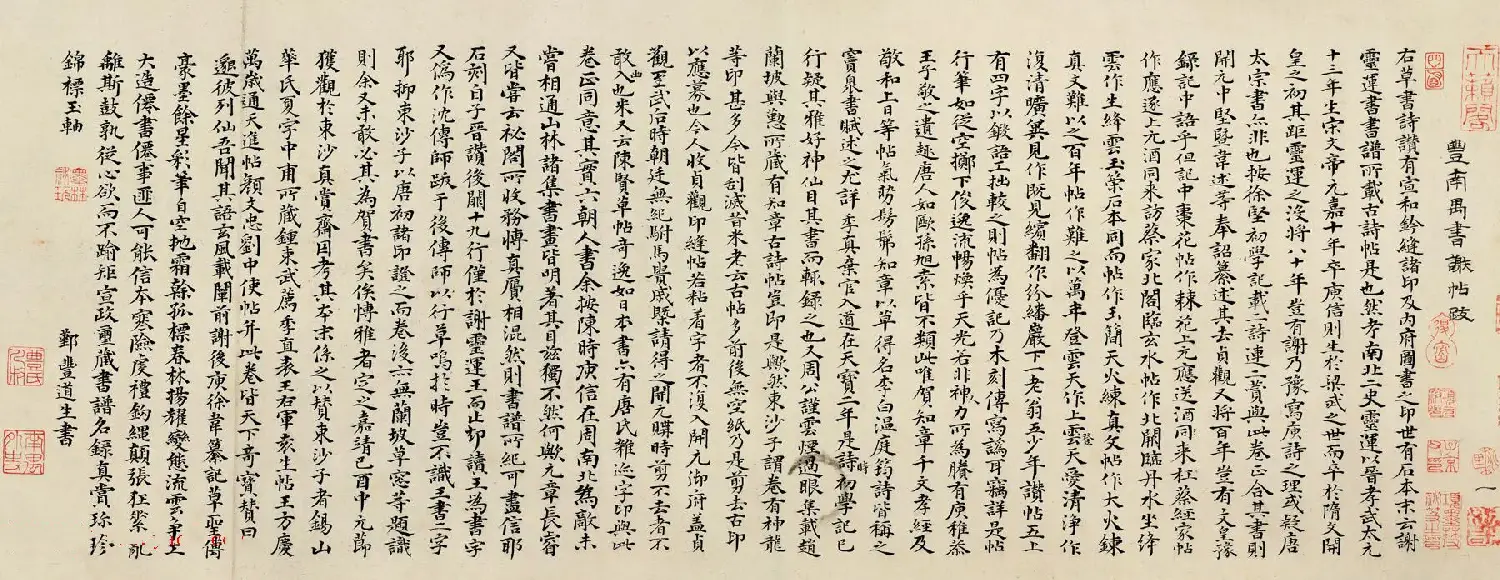 豐南禺書謝帖跋
右草書詩讚有宣和鈐縫諸印及內府圖書之印世有石本末云謝
靈運書書譜所載古詩帖是也然考南北二史靈運以晉孝武太元
十三年生宋文帝元嘉十年卒庾信則生於梁武之世而卒於隋文開
皇之初其距靈運之沒將八十年豈有謝乃豫寫庾詩之理或疑唐
太宗書亦非也按徐堅初學記載二詩連二贊與此卷正合其書則
開元中堅暨韋述等奉詔纂述其去貞觀又將百年豈有文皇豫
錄記中語乎但記中棗花帖作棘花上元應送酒同來杜蔡經家帖
作應逐上元酒同來訪蔡家北閣臨玄水帖作北闕臨丹水坐絳
雲作生絳雲玉策石本同而帖作玉簡天火練真文帖作大火鍊
真文難以之百年帖作難之以萬年登雲天作上登雲天愛清淨作
復清曠冀見作既見繽翻作紛繙巖下一老翁五少年讚帖五上
有四字以鍛語工拙較之則帖為優記乃木刻傳寫譌耳竊詳是帖
行筆如從空擲下俊逸流暢煥乎天光若非人力所為賸有庾稚恭
王子敬之遺趣唐人如歐孫旭素皆不類此唯賀知章千文孝經及
敬和上日等帖氣勢髣髴知章以草得名李白溫庭筠詩皆稱之
竇臮書賦述之尤詳季真棄官入道在天寶二年是時初學記已
行疑其雅好神仙目其書而輒錄之也又周公謹雲煙過眼集載趙
蘭坡與懃所藏有知章古詩帖豈即是歟然東沙子謂卷有神龍
等印甚多今皆刮滅昔米老云古帖多前後無空紙乃是剪去古印
以應募也今人收貞觀印縫帖若粘著字者不復入開元御府蓋貞
觀至武后時朝廷無紀駙馬貴戚丐請得之開元購時剪不去者不
敢以出也米又云陳賢草帖奇逸如日本書亦有唐氏雜迹字印與此
卷正同意其實六朝人書余按陳時庾信在周南北為敵未
嘗相通山林諸集書畫皆明著其目茲獨不然何歟元章長睿
又皆嘗云秘閣所收務博真贗相混然則書譜所紀可盡信耶
石刻自子晉讚後闕十九行僅於謝靈運王而止却讀王為書字
又偽作沈傳師跋于後傳師以行草鳴於時豈不識王書二字
耶抑東沙子以唐初諸印證之而卷後亦無蘭坡草窓等題識
則余又未敢必其為賀書矣俟博雅者定之嘉靖己酉中元節
獲觀於東沙真賞齋因考其本末係之以贊東沙子者錫山
華氏夏字中甫所藏鍾東武薦季直表王右軍袁生帖王方慶
萬歲通天進帖顏文忠劉中使帖并此卷皆天下奇寶贊曰
邈彼列仙吾聞其語玄風載闡前謝後庾徐韋纂記草聖傳
豪墨餘星彩筆自空地霜榦孤標春林揚耀變態流雲筆工
大造僊書僊事匪人可能信本寒險虔禮鉤繩顛張狂縈乖
離斯鼓孰從心欲而不踰矩宣政璽藏書譜名錄真賞珍珍
錦標玉軸
鄞豐道生書